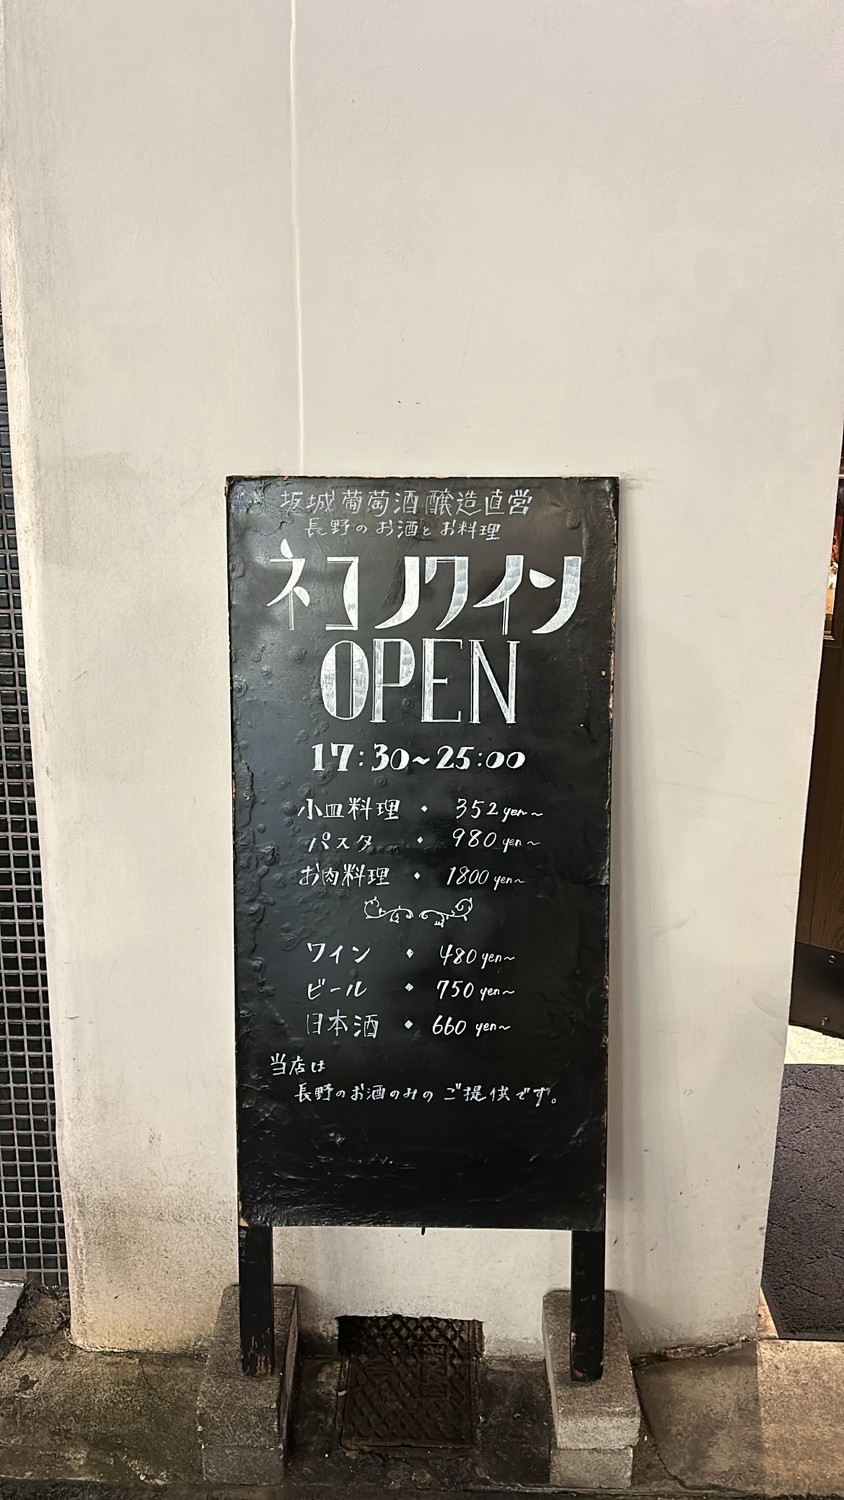 坂城葡萄酒醸造直営
長野のお酒とお料理
ネコノワイン
OPEN
17:30~25:00
小皿料理 ・ 352 yen~
パスタ ・ 980 yen~
お肉料理 ・ 1800 yen~
ワイン ・ 480 yen~
ビール ・ 750 yen~
日本酒 ・ 660 yen~
当店は
長野のお酒のみのご提供です。